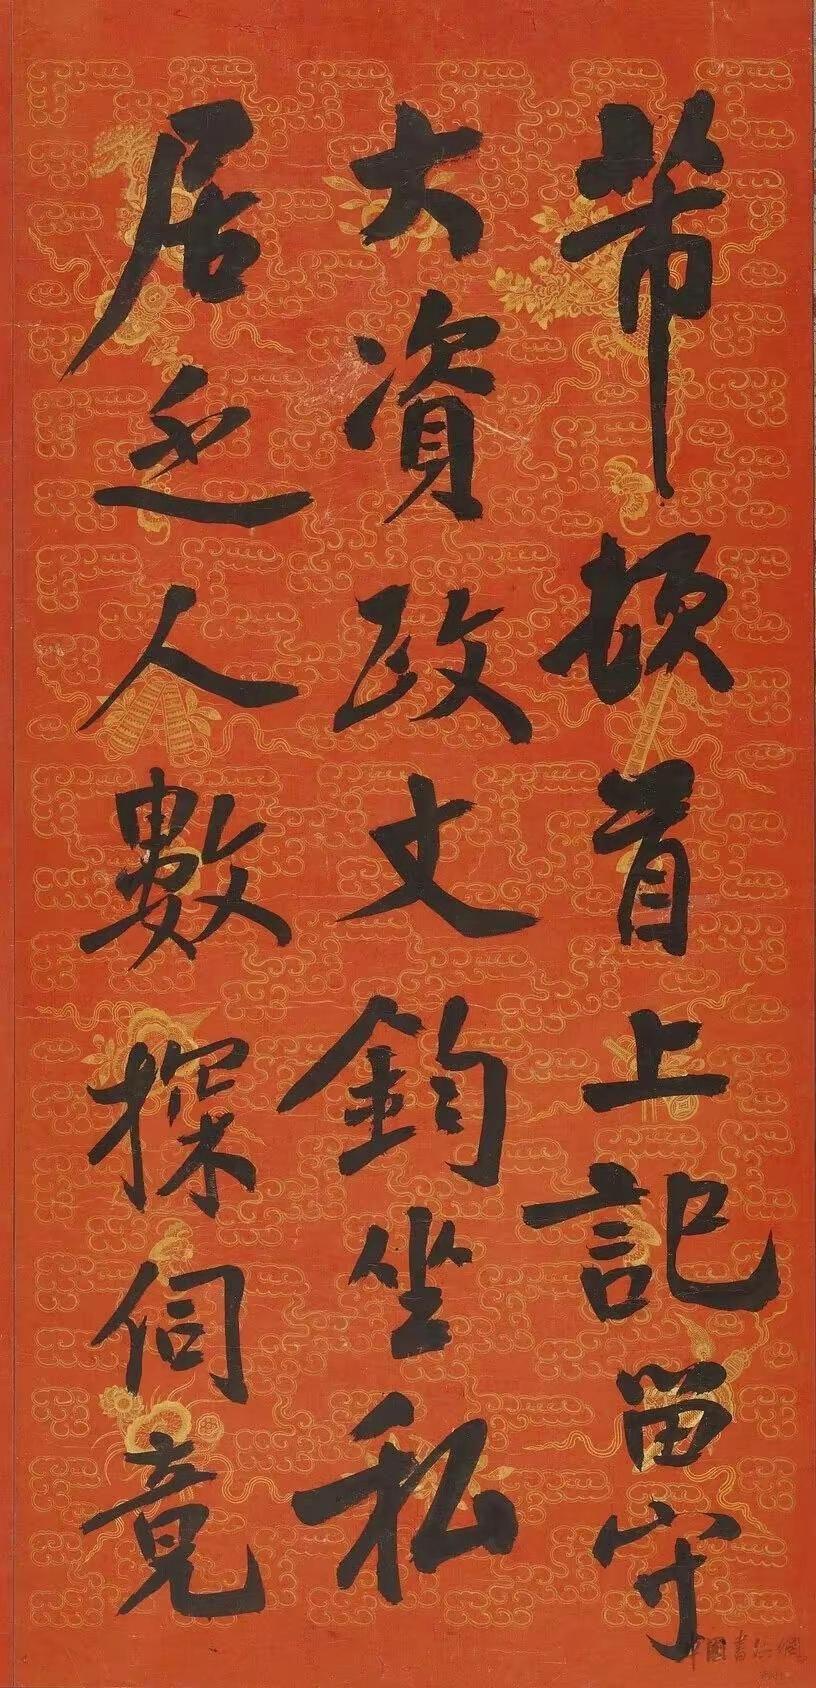 芾頓首上記留守
大資政丈鈞坐私
居乏人數探伺竟
中國書法網